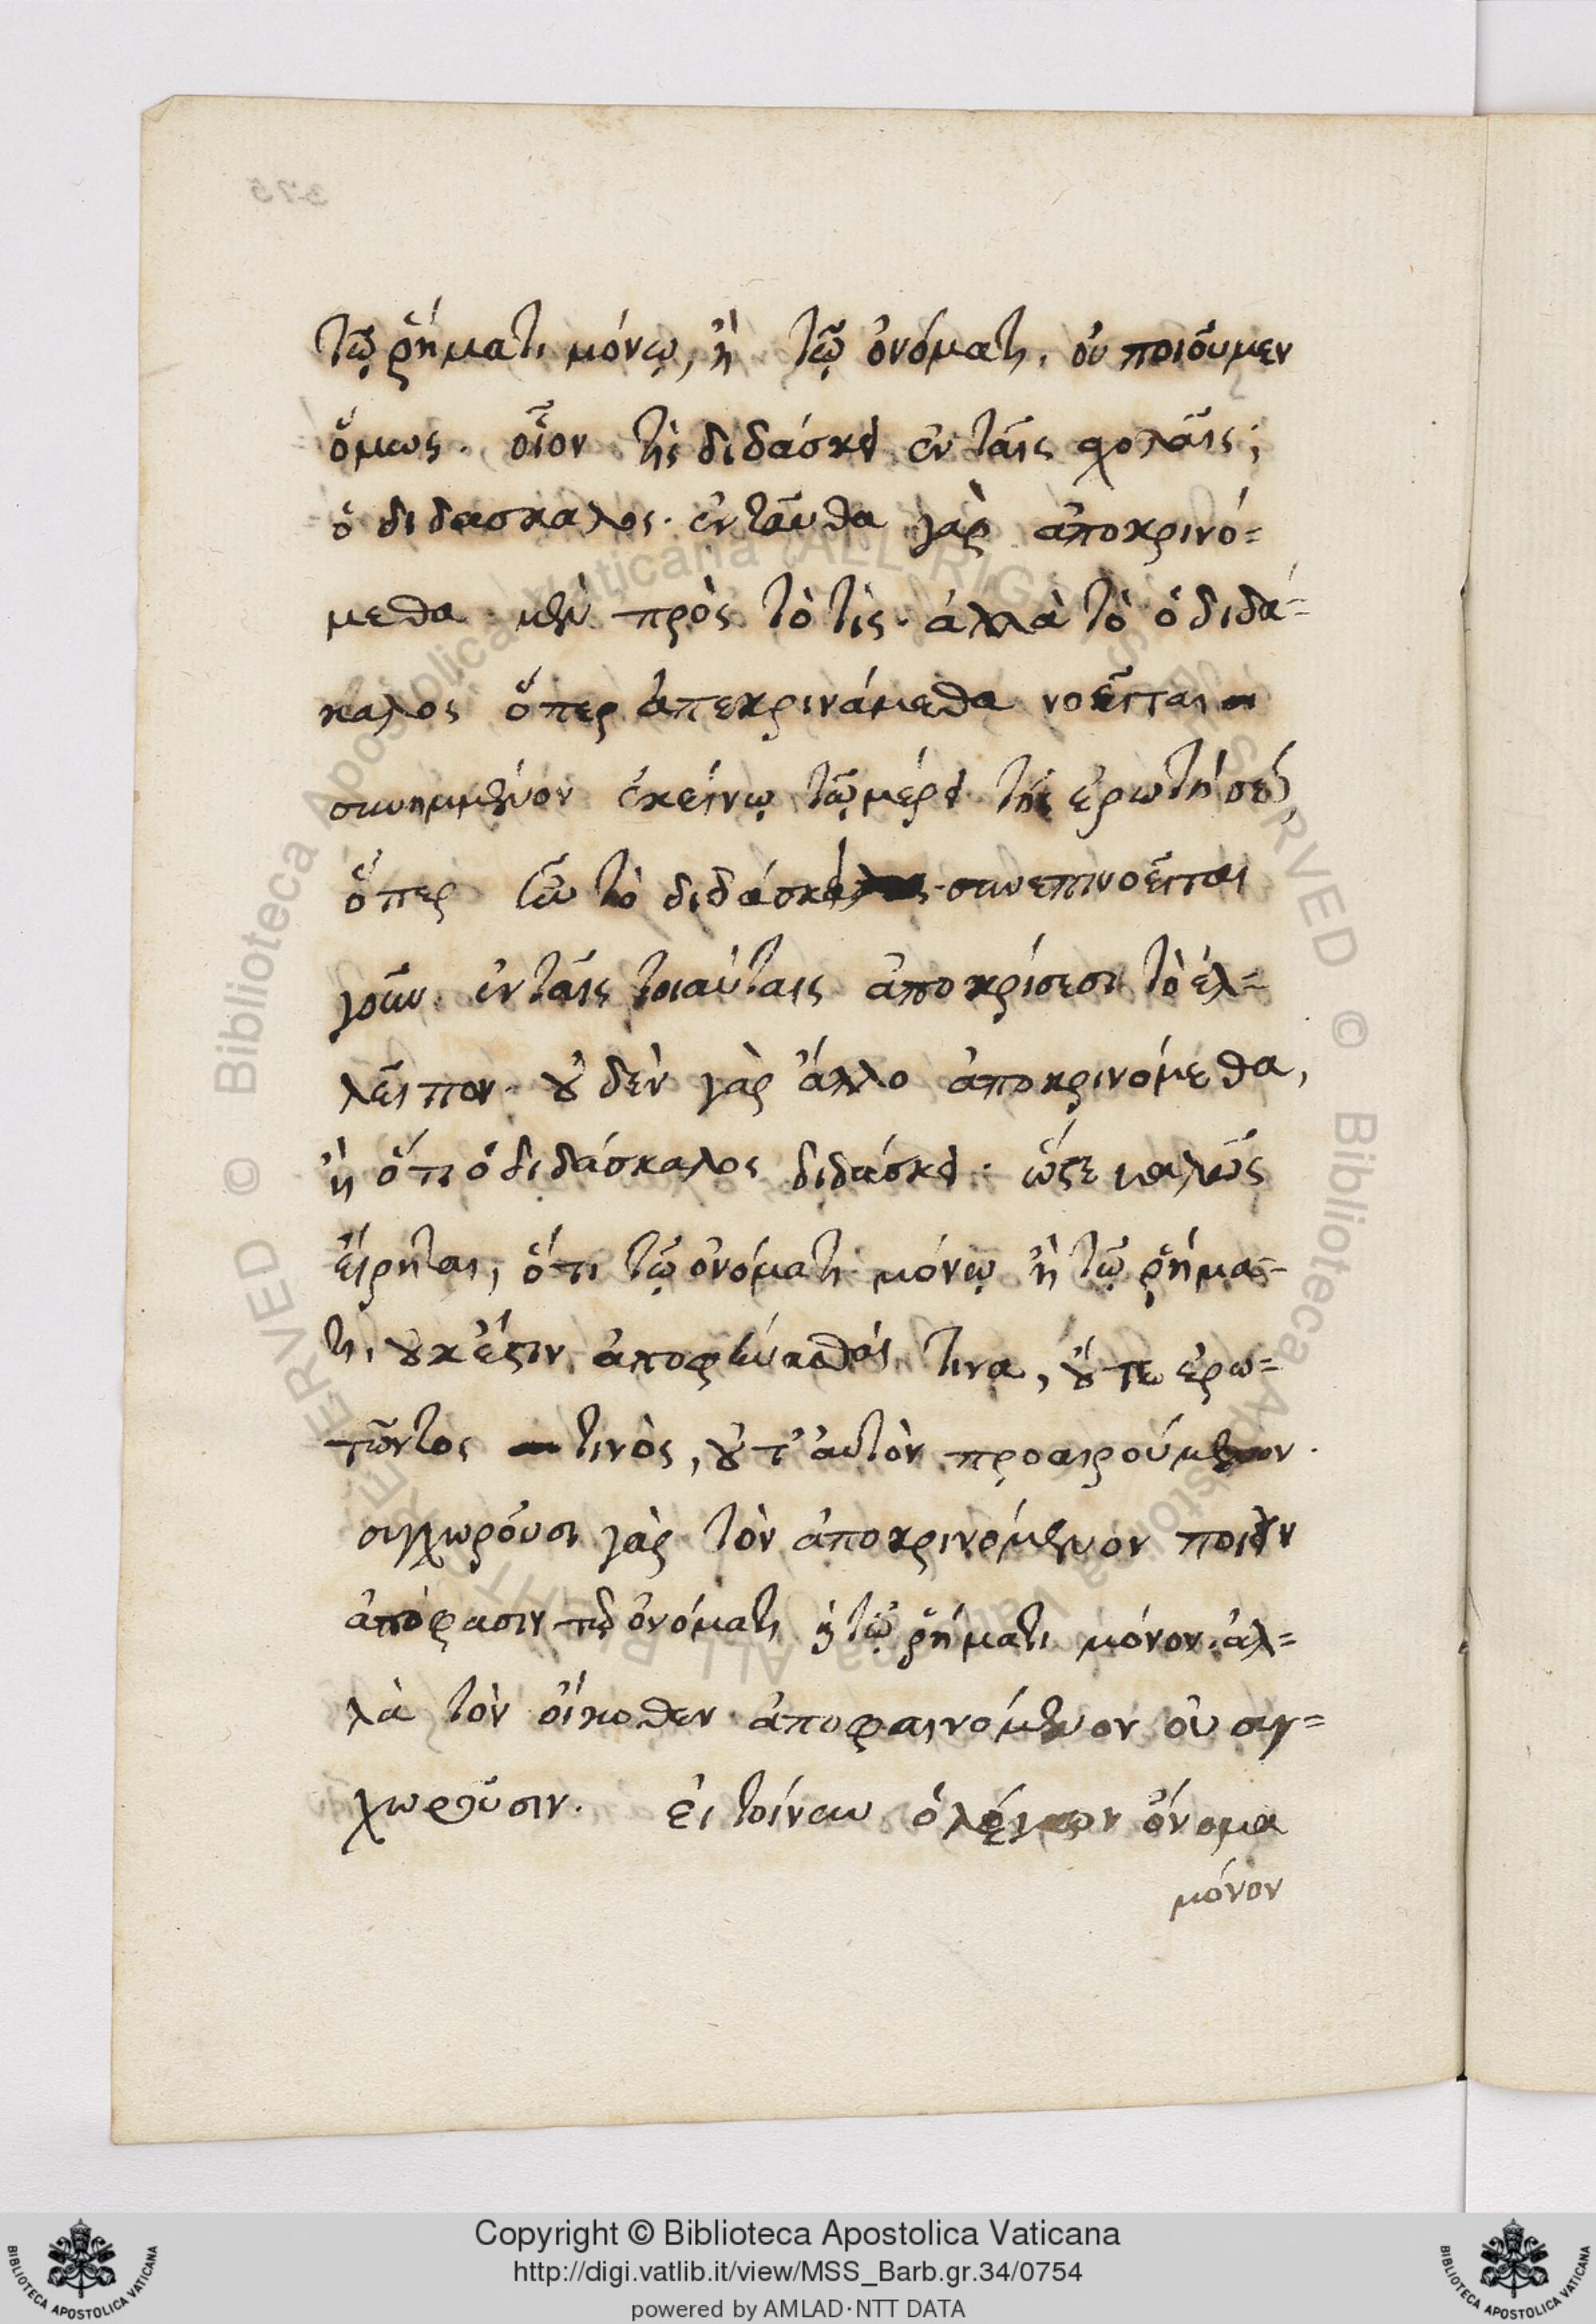 τῷ ῥήματι μόνῳ, ἢ τῷ ὀνόματι. οὐ ποιοῦμεν
ὅμως. οἷον τίς διδάσκει ἐν ταῖς σχολαῖς;
ὁ διδάσκαλος. ἐνταῦθα γὰρ ἀποκρινό=
μεθα μὲν πρὸς τὸ τίς. ἀλλὰ τὸ ὁ διδά=
καλος ὅπερ ἀπεκρινάμεθα νοεῖται
συνημμένον ἐκείνῳ τῷ μέρει τῆς ἐρωτήσεως,
ὅπερ ἦν τὸ διδάσκει. συνεπινοεῖται
γοῦν ἐν ταῖς τοιαύταις ἀποκρίσεσι τὸ ἐλ=
λεῖπον. οὐδὲν γὰρ ἄλλο ἀποκρινόμεθα,
ἢ ὅτι ὁ διδάσκαλος διδάσκει. ὥστε καλῶς
εἴρηται, ὅτι τῷ ὀνόματι μόνῳ ἢ τῷ ῥήμα=
τι, οὐκ ἔστιν ἀποφήνασθαί τινα, οὔτε ἐρω=
τῶντος τινὸς, οὔτ' αὐτὸν προαιρούμενον.
συγχωροῦσι γὰρ τὸν ἀποκρινόμενον ποιεῖν
ἀπόφασιν τῷ ὀνόματι ἢ τῷ ῥήματι μόνον. ἀλ=
λὰ τὸν οἴκοθεν ἀποφαινόμενον οὐ συγ=
χωροῦσιν. εἰ τοίνυν ὁ λέγων ὄνομα
μόνον
Copyright © Biblioteca Apostolica Vaticana
http://digi.vatlib.it/view/MSS_Barb.gr.34/0754
powered by AMLAD·NTT DATA